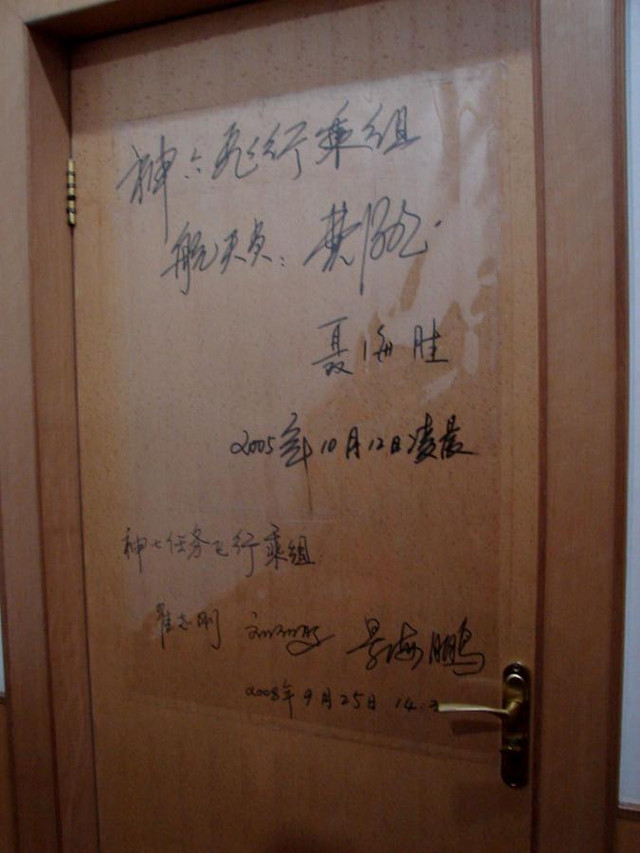 神六飞行乘组
航天员：费俊龙
聂海胜
2005年10月12日凌晨
神七任务飞行乘组
翟志刚 刘伯明 景海鹏
2008年9月25日 14.